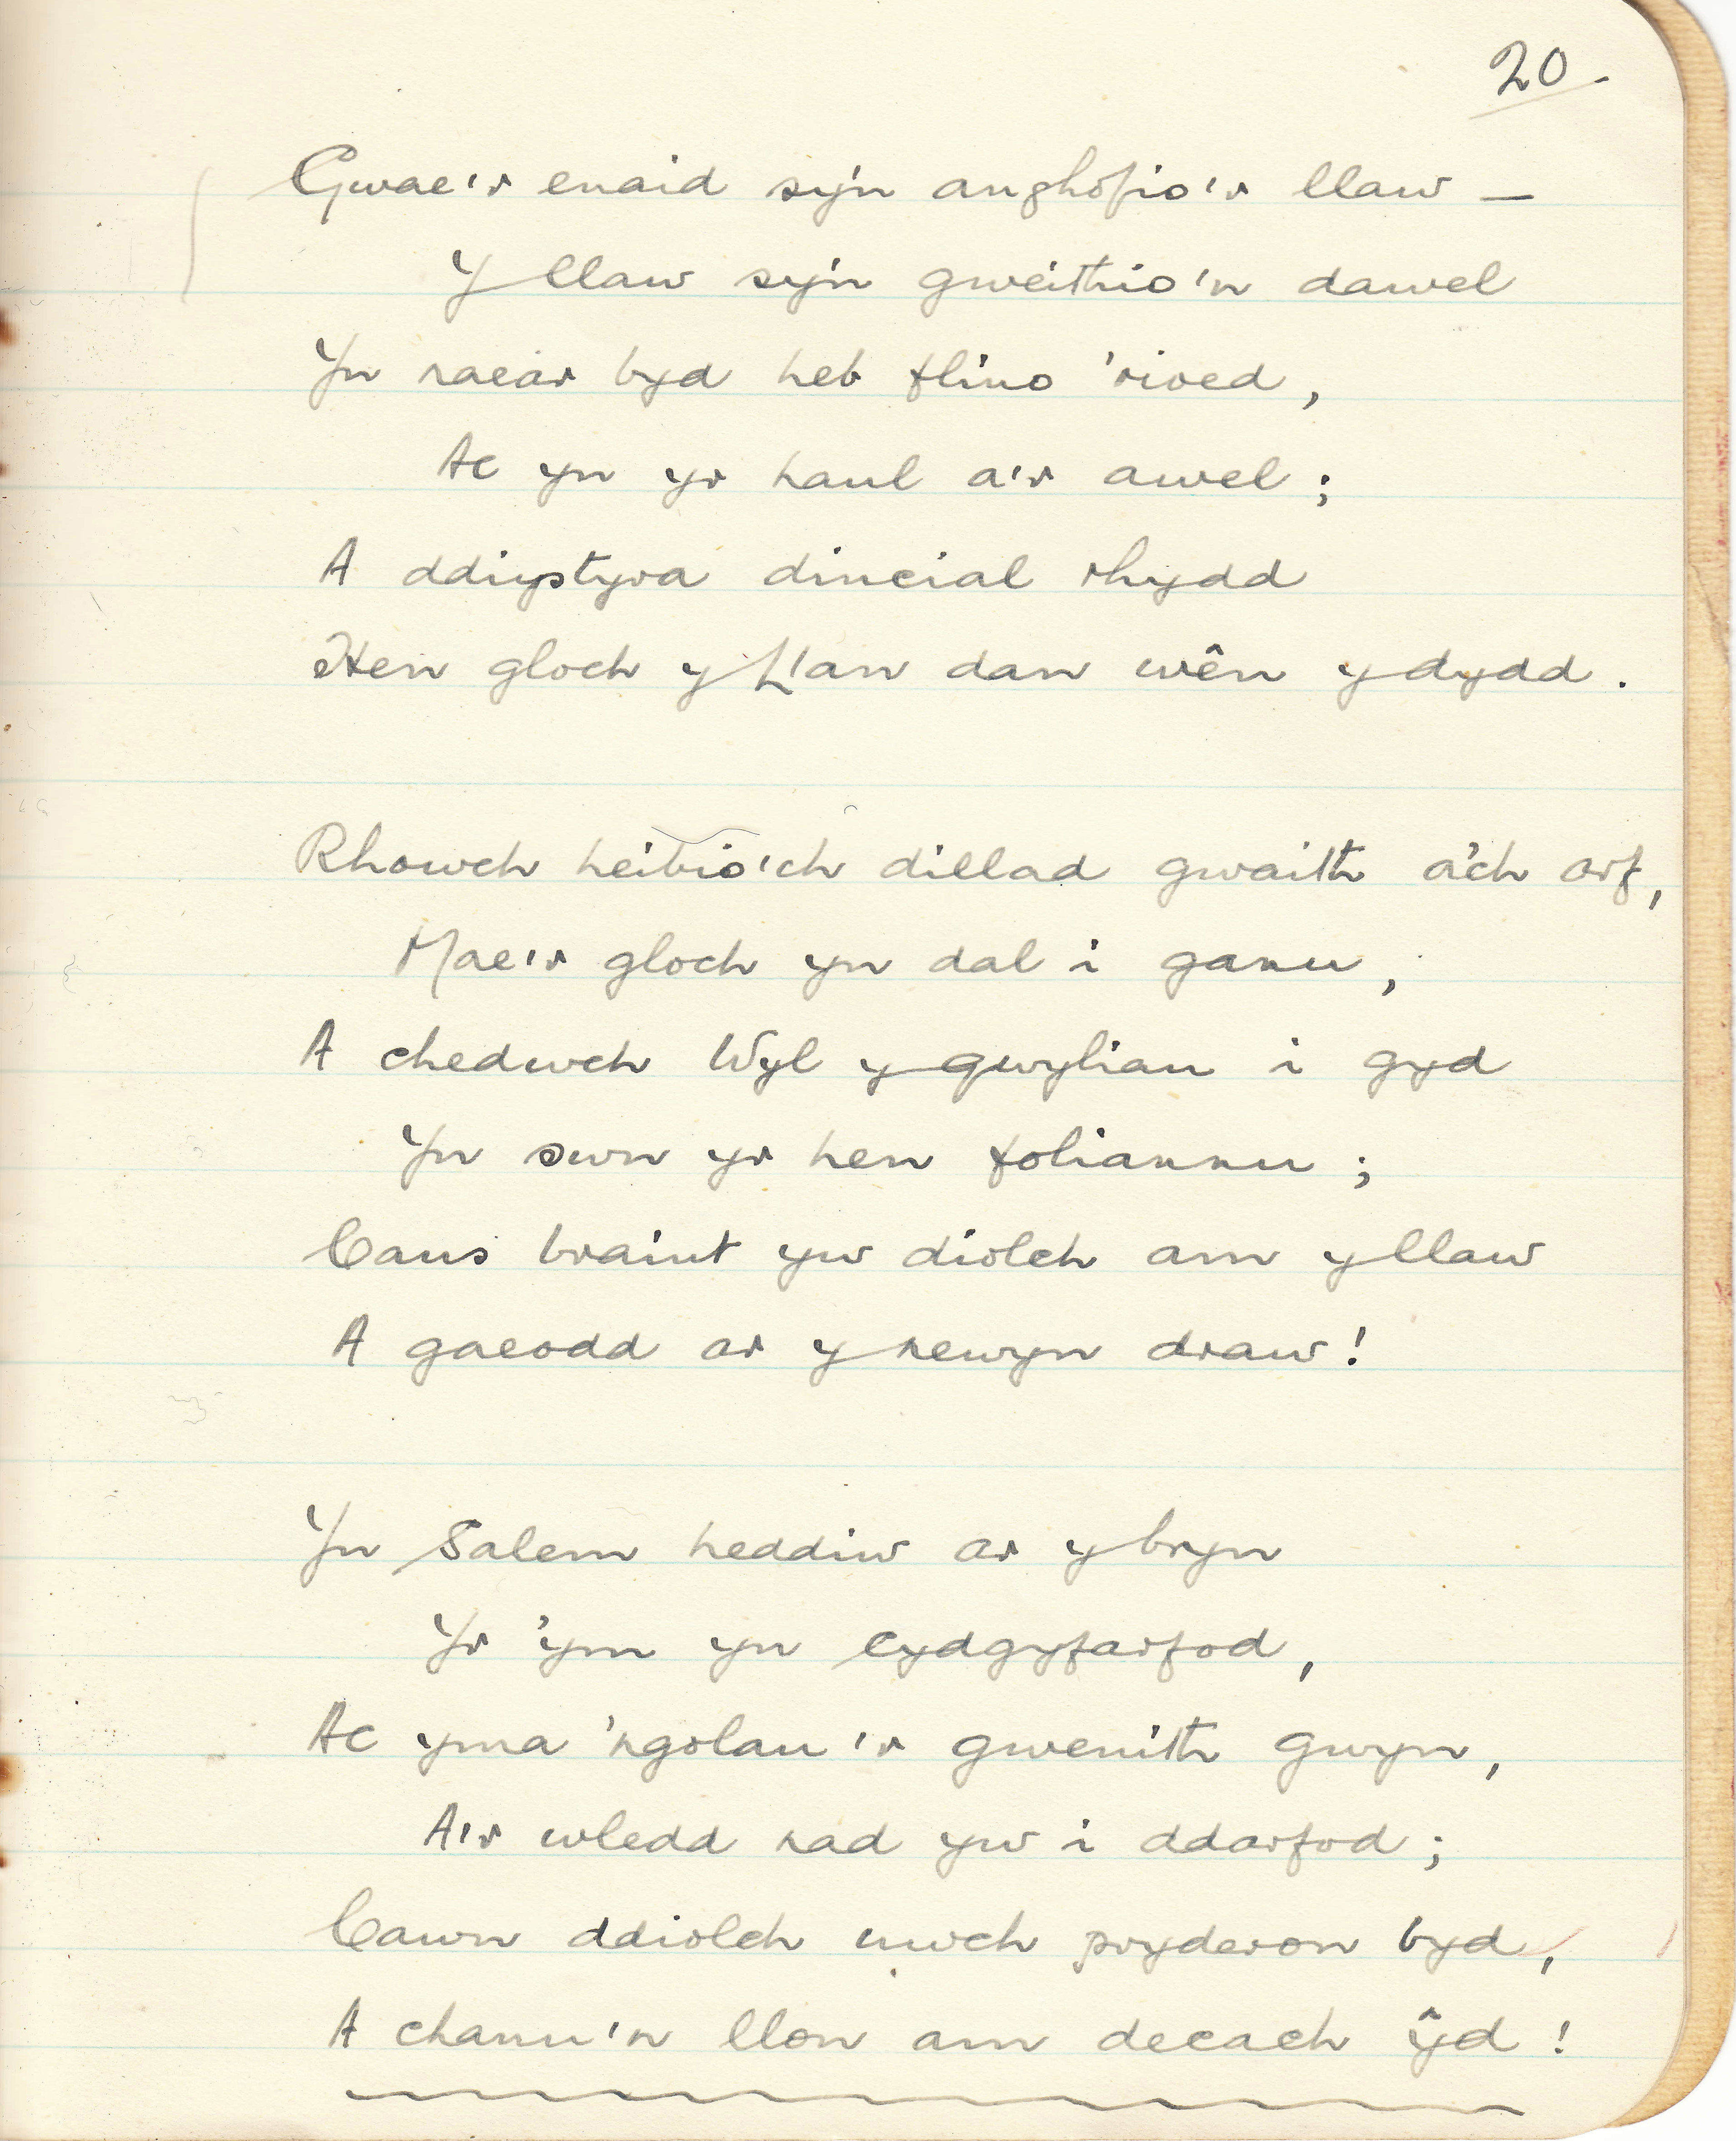 20.
Gwae'r enaid sy'n anghofio'r llaw —
Y llaw sy'n gweithio'n dawel
Yn naear byd heb flino 'rioed,
Ac yn yr haul a'r awel;
A ddiystyra dincial rhydd
Hen gloch y Llan dan wên y dydd.
Rhowch heibio'ch dillad gwaith a'ch arf,
Mae'r gloch yn dal i ganu,
A chedwch Wyl y gwyliau i gyd
Yn swn yr hen foliannu;
Caus braint yw diolch am y llaw
A gaeodd ar y newyn draw!
Yn Salem heddiw ar y bryn
Yr 'ym yn cydgyfarfod,
Ac yma 'ngolau'r gwenith gwyn,
A'r wledd nad yw i ddarfod;
Cawn ddiolch uwch pryderon byd,
A chanu'n llon am decach ŷd!